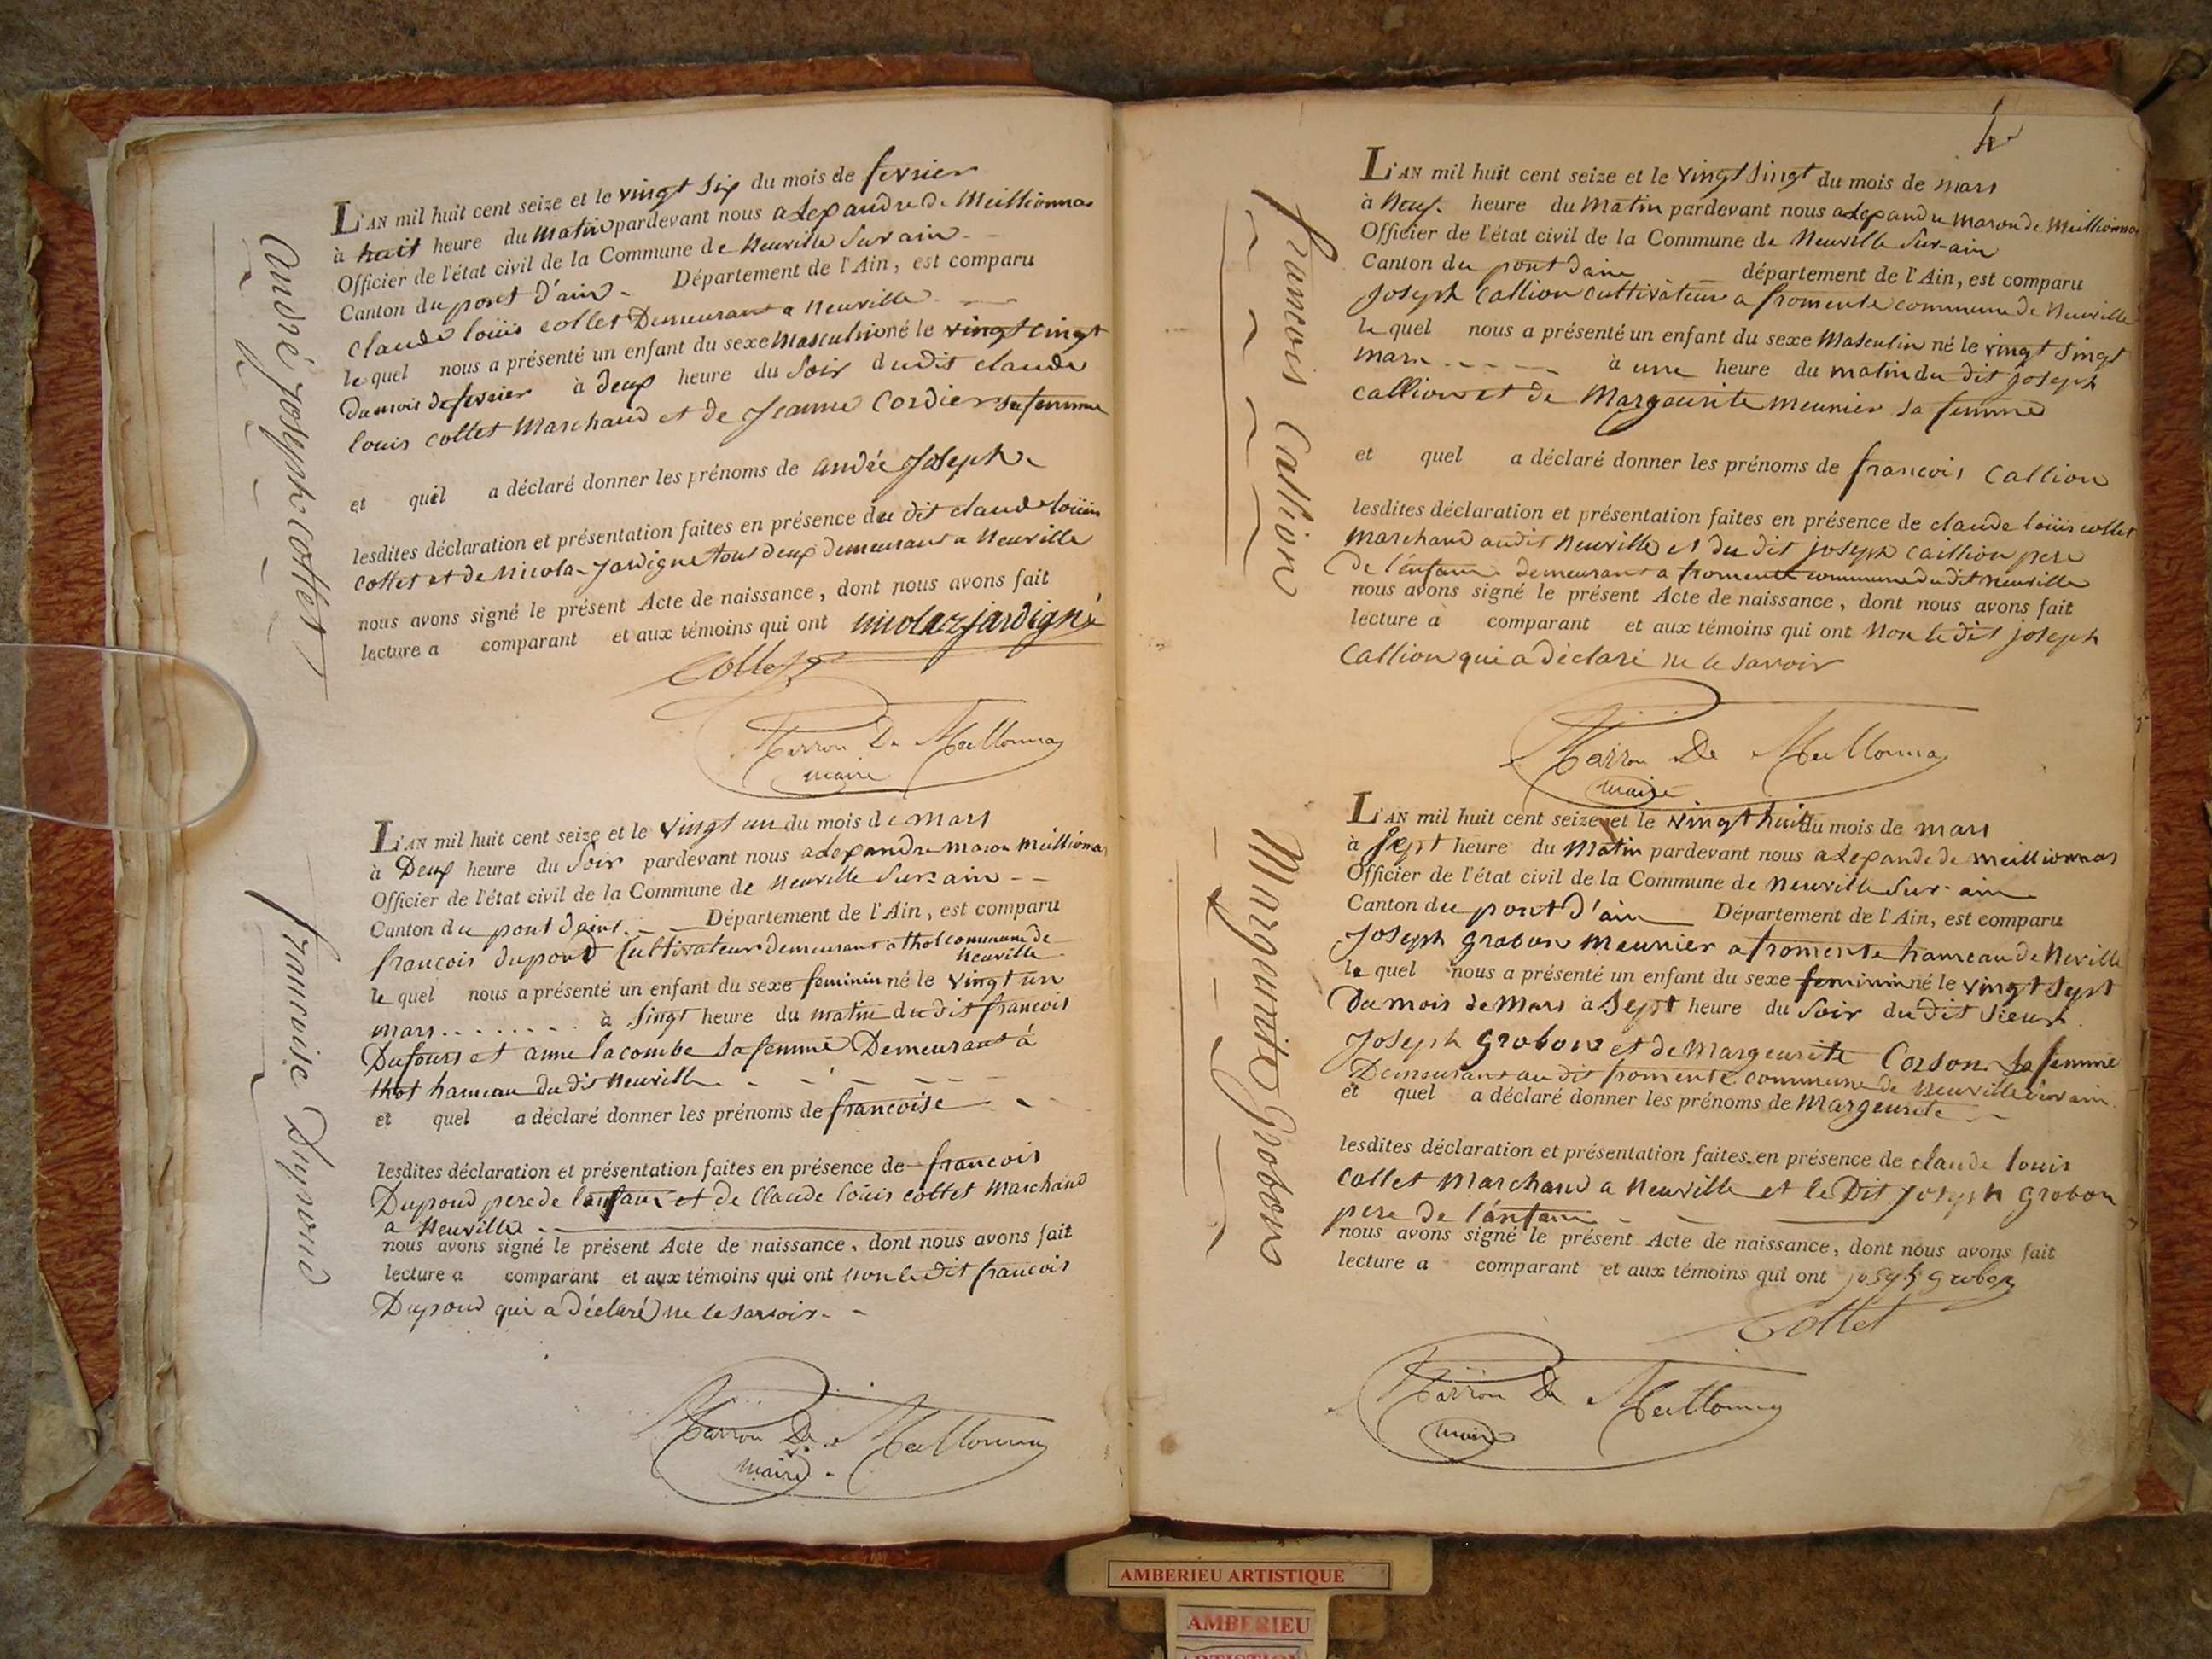 L'AN mil huit cent seize et le vingt six du mois de fevrier
à huit heure du matin pardevant nous alexandre de Meillionnas
Officier de l'état civil de la Commune de neuville sur ain
Canton du pont d'ain Département de l'Ain, est comparu
claude loüis collet Demeurant a neuville
le quel nous a présenté un enfant du sexe masculin né le vingt cingt
du mois de fevrier à deux heure du soir dudit claude
louis collet Marchand et de jeanne Cordier sa femme
et quil a déclaré donner les prénoms de andré joseph
lesdites déclaration et présentation faites en présence du dit claude loüis
collet et de nicola jardigne tous deux demeurant a neuville
nous avons signé le présent Acte de naissance, dont nous avons fait
lecture a comparant et aux témoins qui ont nicolaz jardigné
Collet
Marron De Meillonnas
maire
andré joseph collet
L'AN mil huit cent seize et le vingt un du mois de mars
à Deux heure du soir pardevant nous alexandre maron meillionnas
Officier de l'état civil de la Commune de neuville sur ain
Canton du pont daint Département de l'Ain, est comparu
francois dupond Cultivateur demeurant a thol commune de
neuville
le quel nous a présenté un enfant du sexe feminin né le vingt un
mars à singt heure du matin du dit francois
Dufours et anne lacombe sa femme Demeurant à
thol hameau du dit neuville
et quel a déclaré donner les prénoms de francoise
lesdites déclaration et présentation faites en présence de francois
Dupond pere de lenfant et de claude loüis collet marchand
a neuville
nous avons signé le présent Acte de naissance, dont nous avons fait
lecture a comparant et aux témoins qui ont non le dit francois
Dupond qui a déclaré ne le savoir
Marron De Meillonnas
maire
francoise Dupond
4
L'AN mil huit cent seize et le vingt singt du mois de mars
à neuf heure du matin pardevant nous alexandre maron de meillionnas
Officier de l'état civil de la Commune de neuville sur ain
Canton du pont dain département de l'Ain, est comparu
joseph callion cultivateur a fromente commune de neuville
le quel nous a présenté un enfant du sexe masculin né le vingt singt
mars à une heure du matin du dit joseph
callion et de margeurite meunier sa femme
et quel a déclaré donner les prénoms de francois callion
lesdites déclaration et présentation faites en présence de claude loüis collet
marchand audit neuville et du dit joseph caillion pere
de l'énfant demeurant a fromente commune du dit neuville
nous avons signé le présent Acte de naissance, dont nous avons fait
lecture a comparant et aux témoins qui ont non le dit joseph
callion qui a déclaré ne le savoir
Marron De Meillonnas
maire
francois callion
L'AN mil huit cent seize et le vingt huit du mois de mars
à sept heure du matin pardevant nous alexande de meillionnas
Officier de l'état civil de la Commune de neuville sur ain
Canton du pont d'ain Département de l'Ain, est comparu
joseph grobon meunier a fromente hameau de neville
le quel nous a présenté un enfant du sexe feminin né le vingt sept
du mois de mars à sept heure du soir du dit sieur
joseph grobon et de margeurite Corson sa femme
Demeurant au dit fromente commune de neuville sur ain
et quel a déclaré donner les prénoms de margeurite
lesdites déclaration et présentation faites en présence de claude louis
collet marchand a neuville et le dit joseph grobon
pere de l'énfant
nous avons signé le présent Acte de naissance, dont nous avons fait
lecture a comparant et aux témoins qui ont joseph grobon
Collet
Marron De Meillonnas
maire
Margeurite Grobon
AMBERIEU ARTISTIQUE
AMBERIEU
ARTISTIQUE